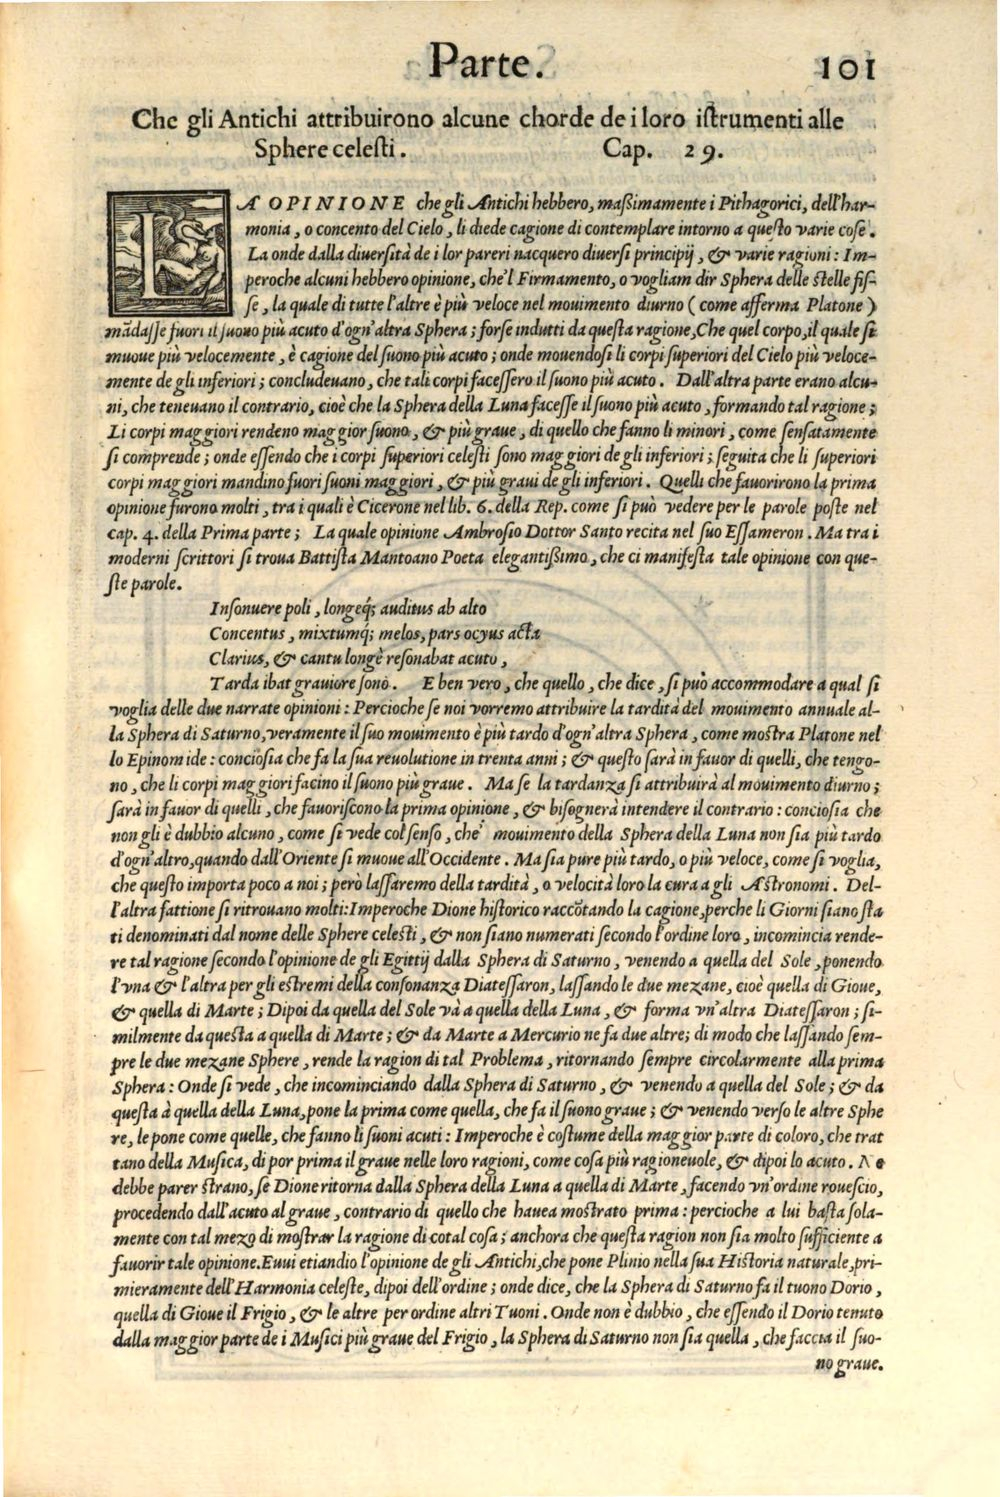 Parte. 101
Che gli Antichi attribuirono alcune chorde de i loro istrumenti alle
Sphere celesti. Cap. 29.
LA OPINIONE che gli Antichi hebbero, maßimamente i Pithagorici, dell'har-
monia, o concento del Cielo, li diede cagione di contemplare intorno a questo varie cose.
La onde dalla diuersità de i lor pareri nacquero diuersi principij, & varie ragioni: Im-
peroche alcuni hebbero opinione, che'l Firmamento, o vogliam dir Sphera delle stelle fis-
se, la quale di tutte l'altre è più veloce nel mouimento diurno (come afferma Platone)
mādasse fuori il suono più acuto d'ogn'altra Sphera; forse indutti da questa ragione, Che quel corpo, il quale si
muoue più velocemente, è cagione del suono più acuto; onde mouendosi li corpi superiori del Cielo più veloce-
mente de gli inferiori; concludeuano, che tali corpi facessero il suono più acuto. Dall'altra parte erano alcu-
ni, che teneuano il contrario, cioè che la Sphera della Luna facesse il suono più acuto, formando tal ragione;
Li corpi maggiori rendeno maggior suono, & più graue, di quello che fanno li minori, come sensatamente
si comprende; onde essendo che i corpi superiori celesti sono maggiori de gli inferiori; seguita che li superiori
corpi maggiori mandino fuori suoni maggiori, & più graui de gli inferiori. Quelli che fauorirono la prima
opinione furono molti, tra i quali è Cicerone nel lib. 6. della Rep. come si può vedere per le parole poste nel
cap. 4. della Prima parte; La quale opinione Ambrosio Dottor Santo recita nel suo Essameron. Ma tra i
moderni scrittori si troua Battista Mantoano Poeta elegantißimo, che ci manifesta tale opinione con que-
ste parole.
Insonuere poli, longeq́; auditus ab alto
Concentus, mixtumq́; melos, pars ocyus acta
Clarius, & cantu longè resonabat acuto,
Tarda ibat grauiore sono. E ben vero, che quello, che dice, si può accommodare a qual si
voglia delle due narrate opinioni: Percioche se noi vorremo attribuire la tardità del mouimento annuale al-
la Sphera di Saturno, veramente il suo mouimento è più tardo d'ogn'altra Sphera, come mostra Platone nel
lo Epinomide: conciosia che fa la sua reuolutione in trenta anni; & questo sarà in fauor di quelli, che tengo-
no, che li corpi maggiori facino il suono più graue. Ma se la tardanza si attribuirà al mouimento diurno;
sarà in fauor di quelli, che fauoriscono la prima opinione, & bisognerà intendere il contrario: conciosia che
non gli è dubbio alcuno, come si vede col senso, che'l mouimento della Sphera della Luna non sia più tardo
d'ogn'altro, quando dall'Oriente si muoue all'Occidente. Ma sia pure più tardo, o più veloce, come si voglia,
che questo importa poco a noi; però lassaremo della tardità, o velocità loro la cura a gli Astronomi. Del-
l'altra fattione si ritrouano molti: Imperoche Dione historico raccōtando la cagione, perche li Giorni siano sta
ti denominati dal nome delle Sphere celesti, & non siano numerati secondo l'ordine loro, incomincia rende-
re tal ragione secondo l'opinione de gli Egittij dalla Sphera di Saturno, venendo a quella del Sole, ponendo
l'vna & l'altra per gli estremi della consonanza Diatessaron, lassando le due mezane, cioè quella di Gioue,
& quella di Marte; Dipoi da quella del Sole và a quella della Luna, & forma vn'altra Diatessaron; si-
milmente da questa a quella di Marte; & da Marte a Mercurio ne fa due altre; di modo che lassando sem-
pre le due mezane Sphere, rende la ragion di tal Problema, ritornando sempre circolarmente alla prima
Sphera: Onde si vede, che incominciando dalla Sphera di Saturno, & venendo a quella del Sole; & da
questa à quella della Luna, pone la prima come quella, che fa il suono graue; & venendo verso le altre Sphe
re, le pone come quelle, che fanno li suoni acuti: Imperoche è costume della maggior parte di coloro, che trat
tano della Musica, di por prima il graue nelle loro ragioni, come cosa più ragioneuole, & dipoi lo acuto. Ne
debbe parer strano, se Dione ritorna dalla Sphera della Luna a quella di Marte, facendo vn'ordine rouescio,
procedendo dall'acuto al graue, contrario di quello che hauea mostrato prima: percioche a lui basta sola-
mente con tal mezo di mostrar la ragione di cotal cosa; anchora che questa ragion non sia molto sufficiente a
fauorir tale opinione. Euui etiandio l'opinione de gli Antichi, che pone Plinio nella sua Historia naturale, pri-
mieramente dell'Harmonia celeste, dipoi dell'ordine; onde dice, che la Sphera di Saturno fa il tuono Dorio,
quella di Gioue il Frigio, & le altre per ordine altri Tuoni. Onde non è dubbio, che essendo il Dorio tenuto
dalla maggior parte de i Musici più graue del Frigio, la Sphera di Saturno non sia quella, che faccia il suo-
no graue.